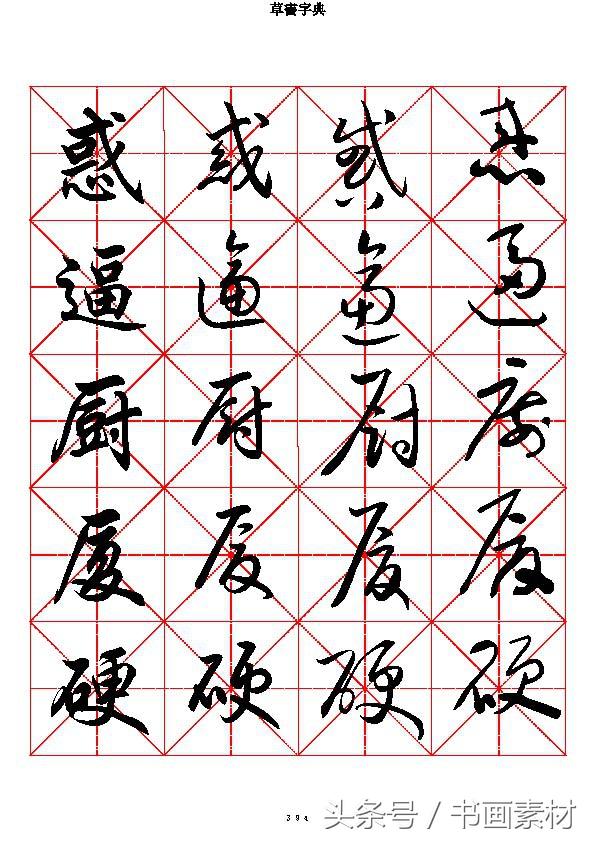 草書字典
惑 惑 惑 惑
逼 逼 逼 逼
厨 厨 厨 厨
厦 厦 厦 厦
硬 硬 硬 硬
394
头条号 / 书画素材